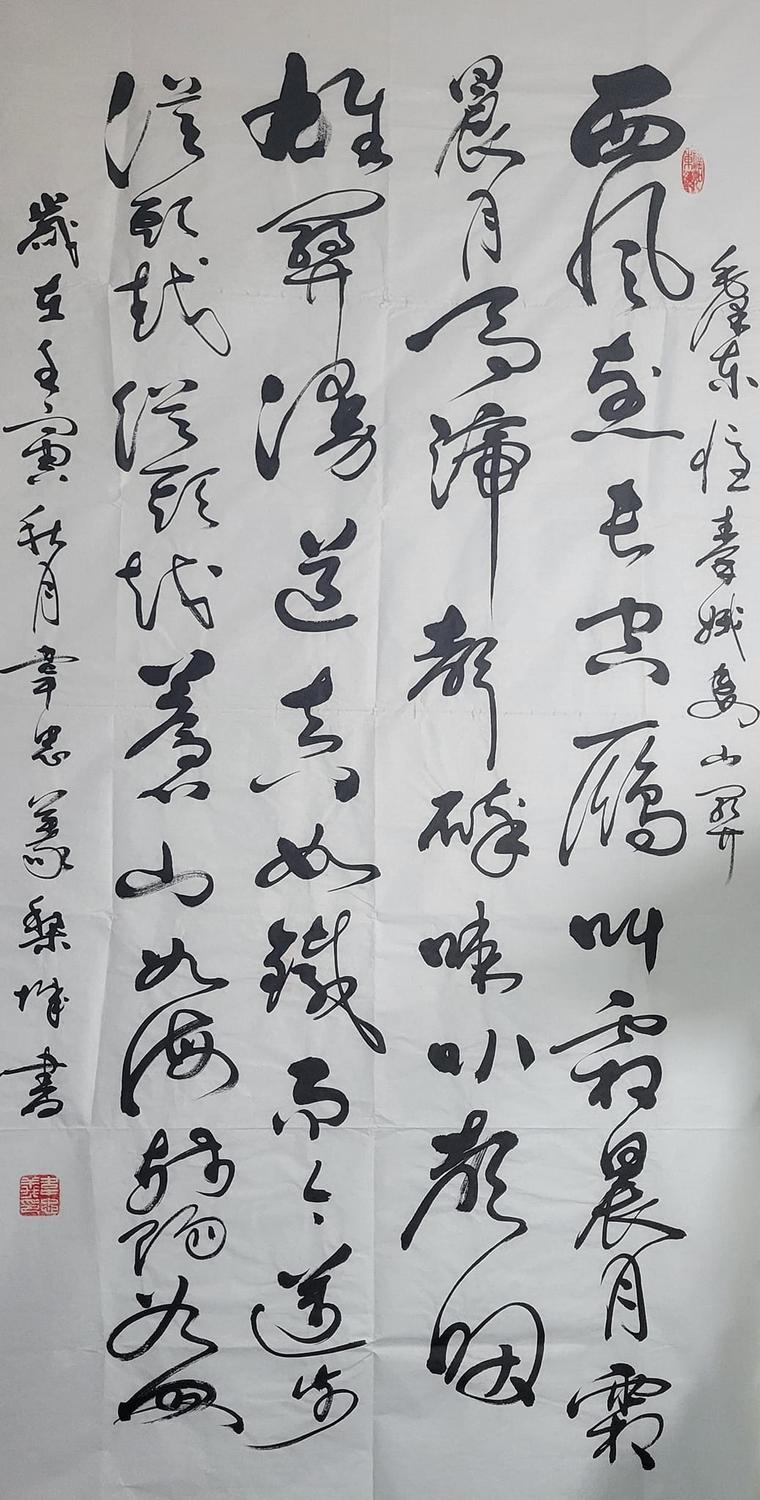 毛泽东忆秦娥娄山关
西风烈长空雁叫霜晨月霜
晨月马蹄声碎喇叭声咽
雄关漫道真如铁而今迈步
从头越从头越苍山如海残阳如血
岁在壬寅秋月韦忠义黎城书